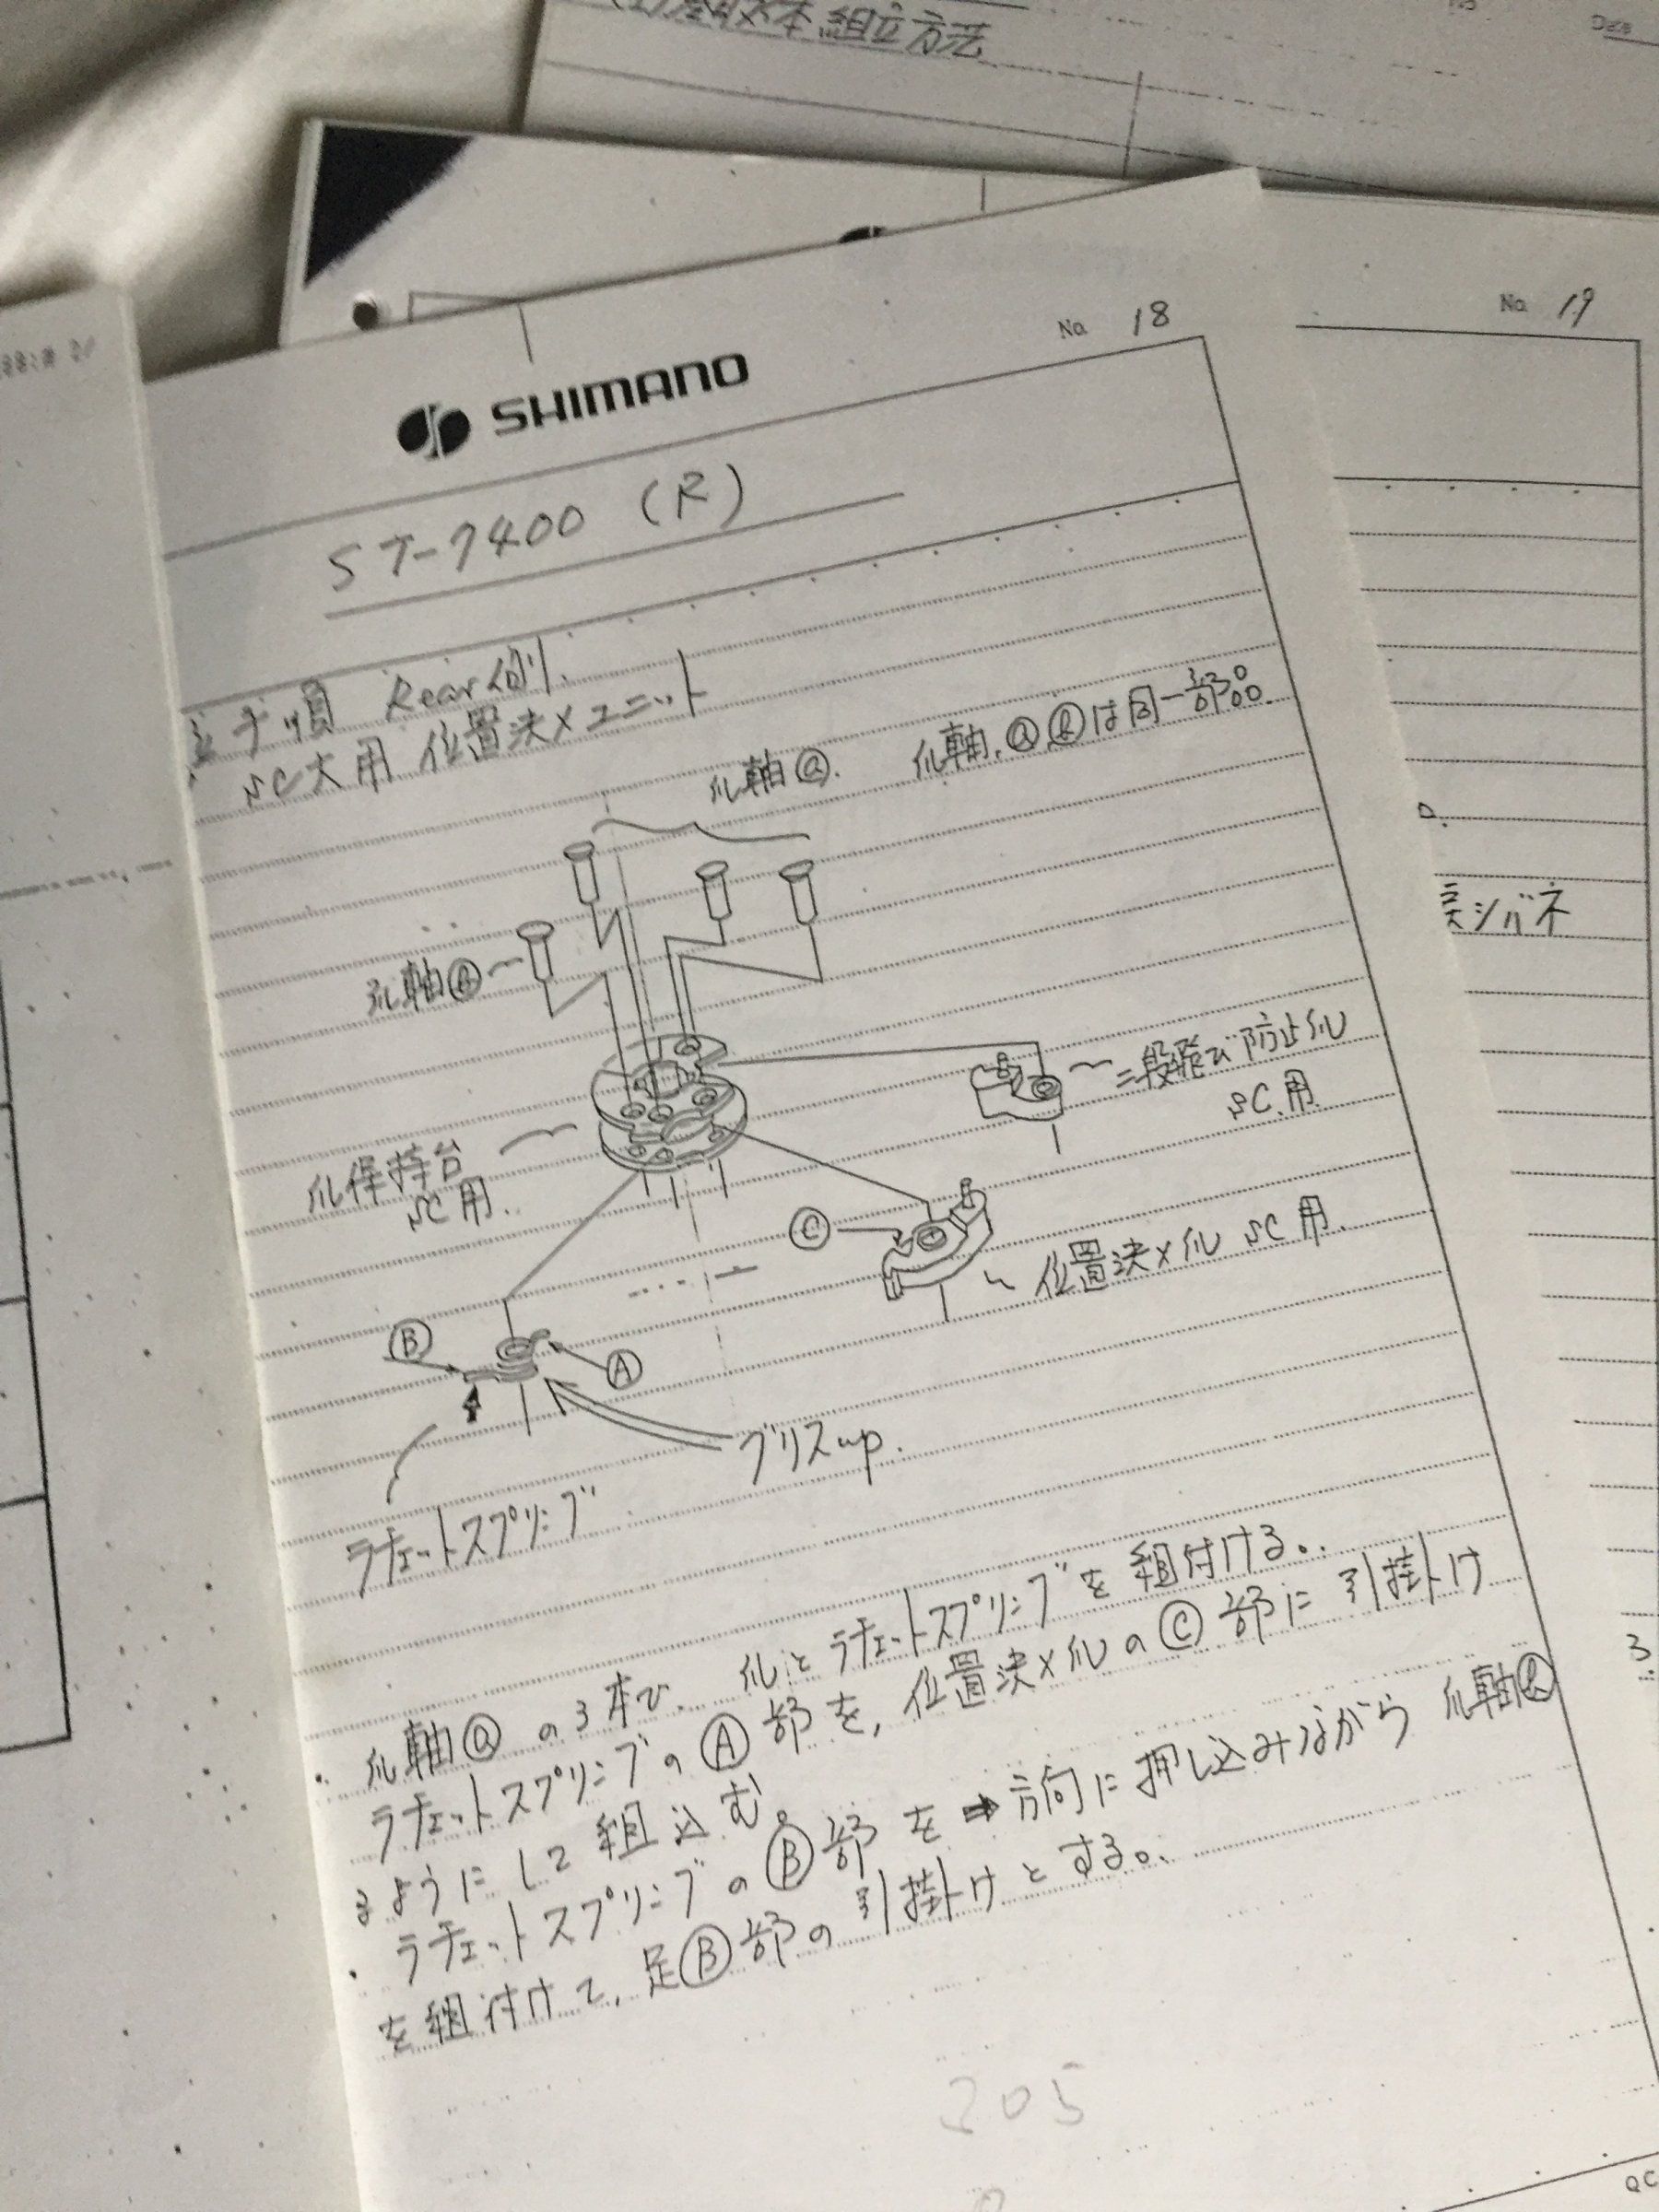 本組立方法
Date
No. 18
No. 19
SHIMANO
ST-7400 (R)
手順 Rear側.
SC大用 位置決メユニット
爪軸ⓐ. 爪軸.ⓐⓑは同一部品.
爪軸ⓑ
二段飛び防止爪
SC.用
爪保持台
SC用.
Ⓒ
位置決メ爪 SC用.
Ⓑ
Ⓐ
グリスup.
ラチェットスプリング
シバネ
・爪軸ⓐの3本で、爪とラチェットスプリングを組付ける。
ラチェットスプリングのⒶ部を,位置決メ爪のⒸ部に引掛け
るようにして組込む。
・ラチェットスプリングのⒷ部を➡方向に押し込みながら爪軸ⓑ
を組付けて,足Ⓑ部の引掛けとする。
205
QC